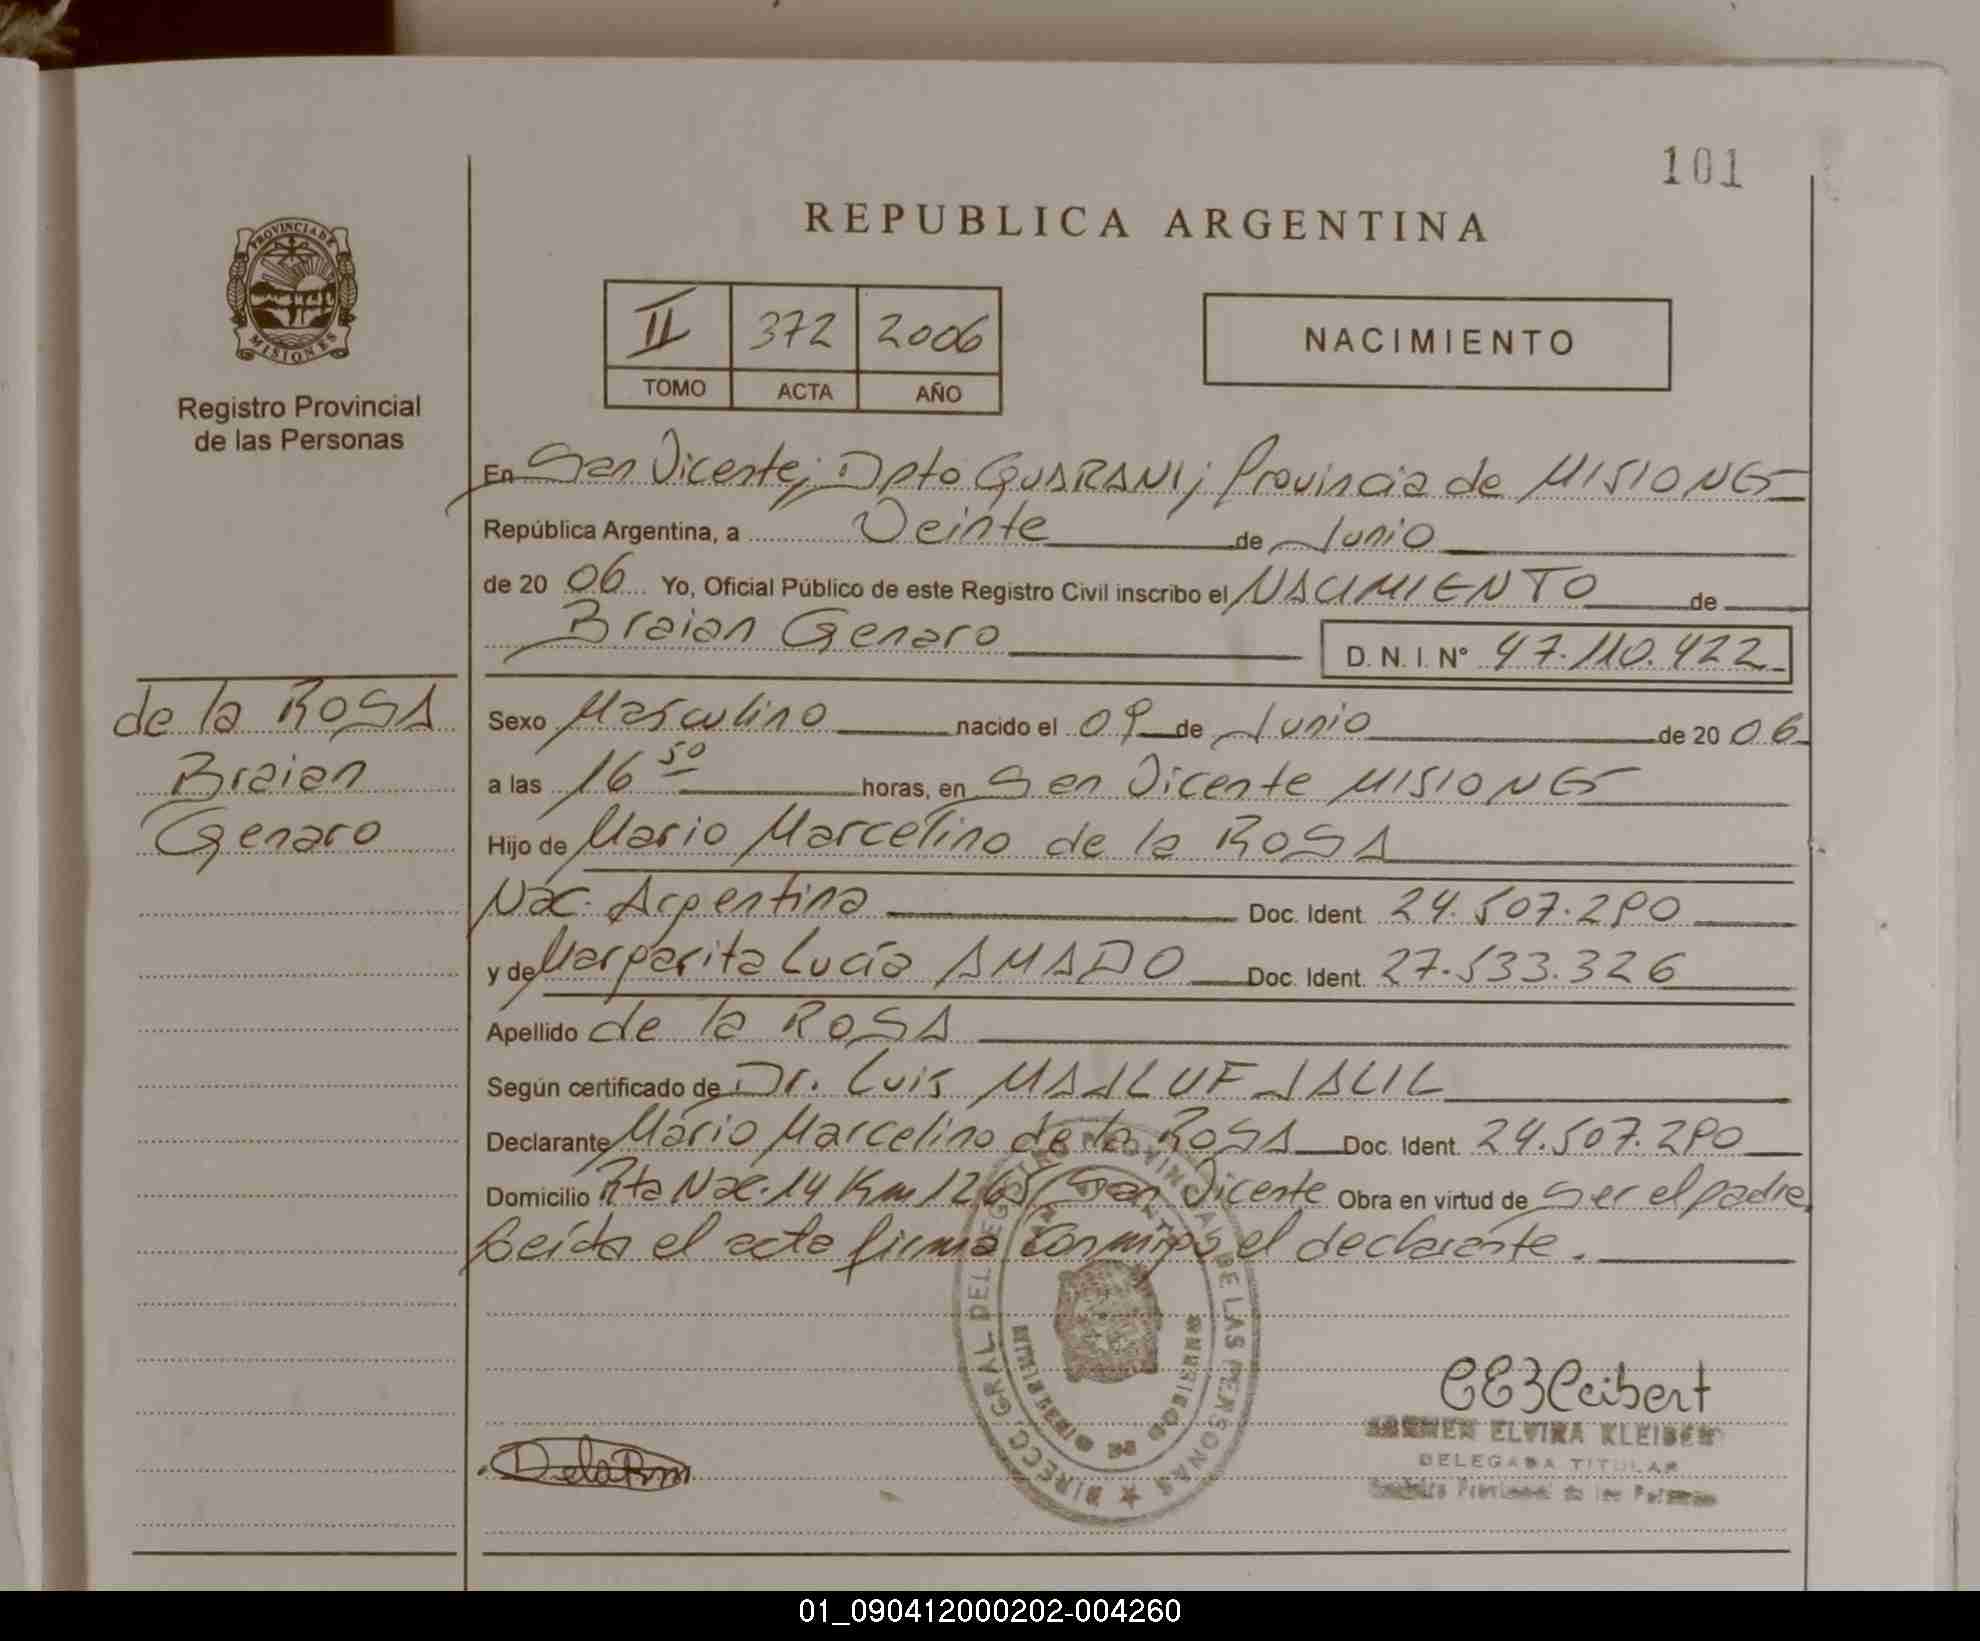 101
REPUBLICA ARGENTINA
PROVINCIA DE
MISIONES
Registro Provincial
de las Personas
II 372 2006
TOMO ACTA AÑO
NACIMIENTO
En San Vicente; Dpto GUARANI; Provincia de MISIONES
República Argentina, a Veinte de Junio
de 20 06 Yo, Oficial Público de este Registro Civil inscribo el NACIMIENTO de
Braian Genaro D. N. I. N° 47.110.422
de la ROSA
Braian
Genaro
Sexo Masculino nacido el 09 de Junio de 20 06
a las 16 50 horas, en San Vicente MISIONES
Hijo de Mario Marcelino de la ROSA
Nac. Argentina Doc. Ident. 24.507.290
y de Margarita Lucía AMADO Doc. Ident. 27.533.326
Apellido de la ROSA
Según certificado de Dr. Luis MAALUF JALIL
Declarante Mario Marcelino de la ROSA Doc. Ident. 24.507.290
Domicilio Rta Nac. 14 Km 1265 San Vicente Obra en virtud de Ser el padre
Leída el acta firma conmigo el declarante.
DIRECC. GRAL DEL REGISTRO PROVINCIAL DE LAS PERSONAS
ELVIRA
DELEGADA TITULAR
Registro Provincial de las Personas
01_090412000202-004260